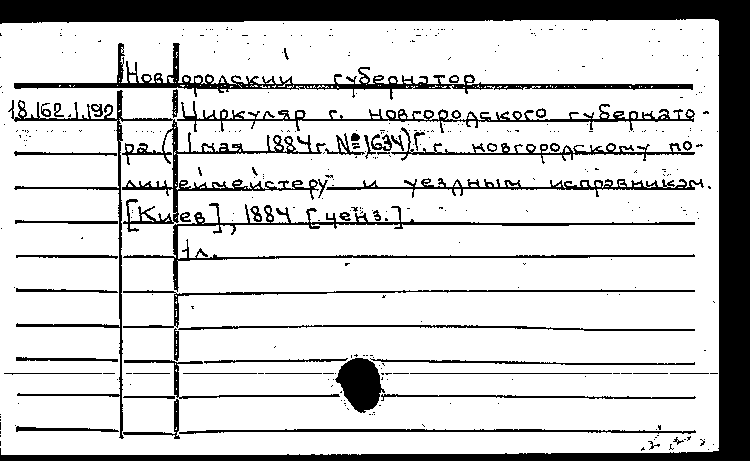 Новгородский губернатор.
18.162.1.192 Циркуляр г. новгородского губернато-
ра. (1 мая 1884 г. № 1634). Г.г. новгородскому по-
лицеймейстеру и уездным исправникам.
[Киев], 1884 [ценз.].
1 л.